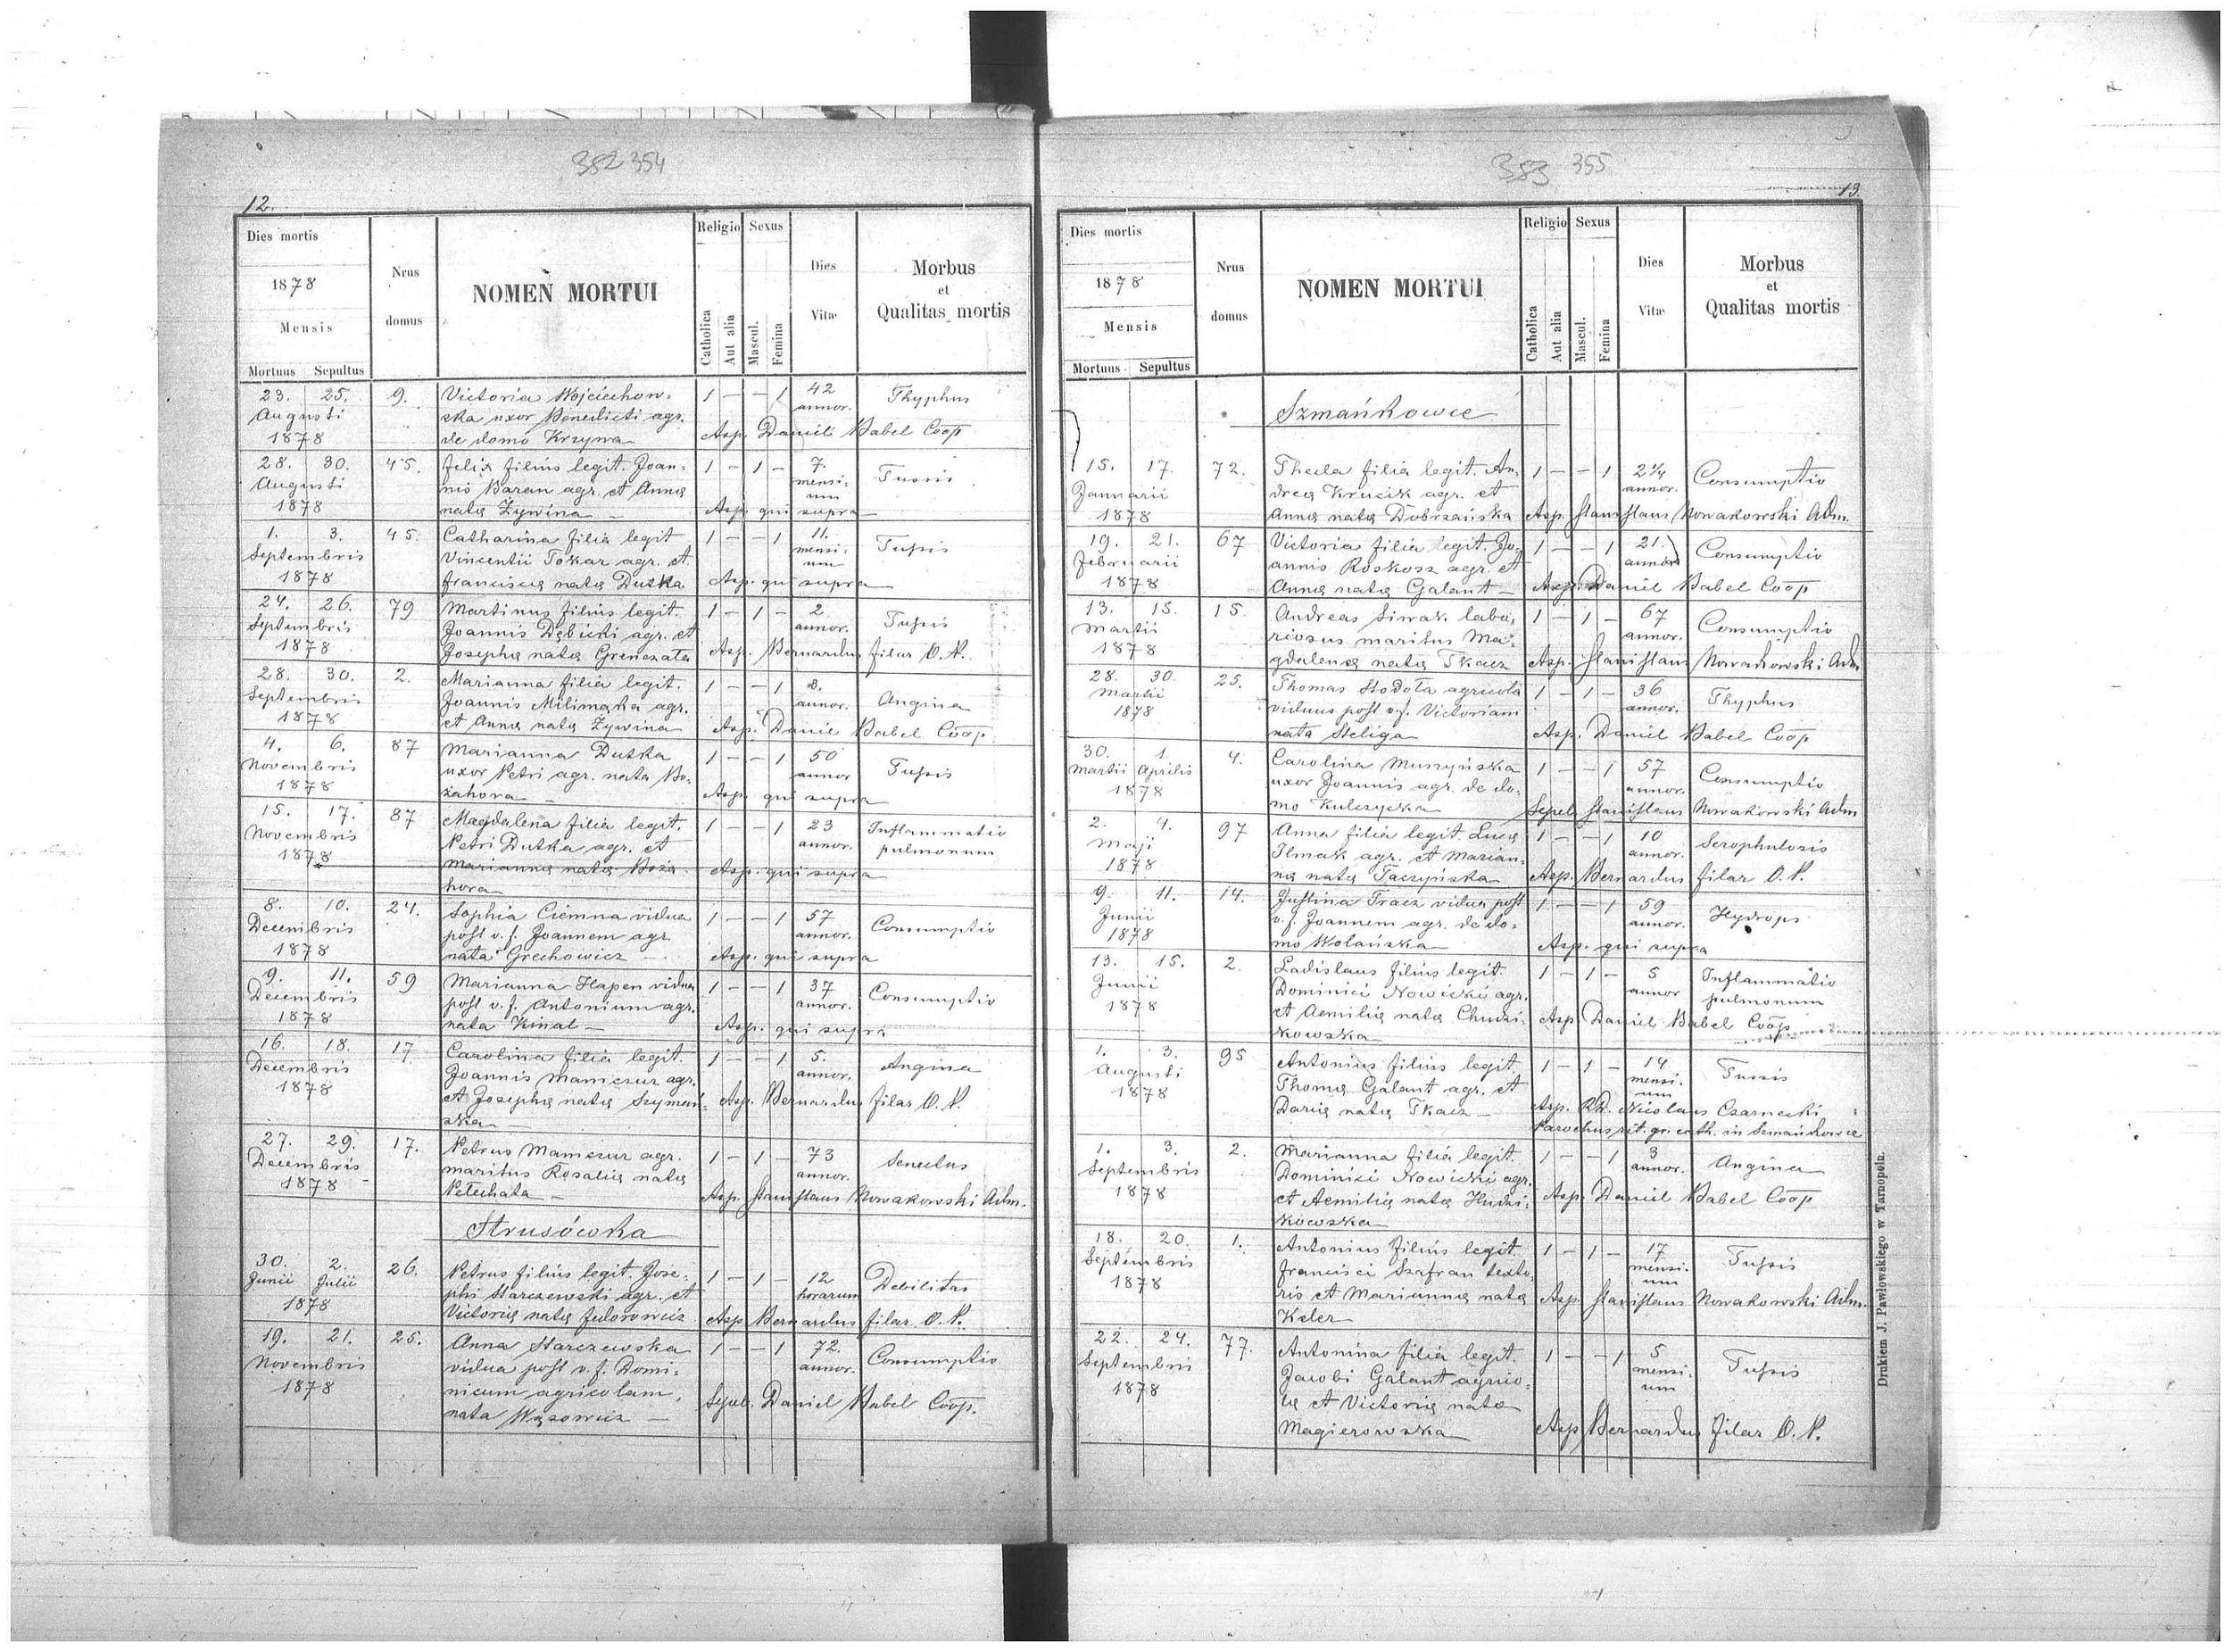 352 354
12.
Dies mortis
1878
Mensis
Mortuus Sepultus
Nrus
domus
NOMEN MORTUI
Religio Sexus
Catholica
Aut alia
Mascul.
Femina
Dies
Vitæ
Morbus
et
Qualitas mortis
23. 25. 9. Victoria Wojciechow- 1 – – 1 42 Thyphus
Augusti ska uxor Benedicti agr. annor.
1878 de domo Krzywa Asp. Daniel Babel Coop
28. 30. 45. Felix filius legit. Joan- 1 – 1 – 7. Tussis
Augusti nis Baran agr. et Annę mensi-
um
1878 natę Żywina – Asp. qui supra –
1. 3. 45. Catharina filia legit. 1 – – 1 11. Tussis
Septembris Vincentii Tokar agr. et mensi-
um
1878 Franciscę natę Dutka Asp. qui supra
24. 26. 79 Martinus filius legit. 1 – 1 – 2. Tussis
Septembris Joannis Dębicki agr. et annor.
1878 Josephę natę Asp. Bernardus Filar O. P.
28. 30. 2. Marianna filia legit. 1 – – 1 8. Angina
Septembris Joannis agr. annor.
1878 et Annę natę Żywina Asp. Daniel Babel Coop.
4. 6. 87 Marianna Dutka 1 – – 1 50 Tussis
Novembris uxor Petri agr. nata Bo- annor
1878 żahora – Asp. qui supra
15. 17. 87 Magdalena filia legit. 1 – – 1 23 Inflammatio
Novembris Petri Dutka agr. et annor. pulmonum
1878 Mariannę natę Boża- Asp. qui supra
hora –
8. 10. 24. Sophia Ciemna vidua 1 – – 1 57 Consumptio
Decembris post v. f. Joannem agr. annor.
1878 nata Grechowicz – Asp. qui supra
9. 11. 59 Marianna Hapen vidua 1 – – 1 37 Consumptio
Decembris post v. f. Antonium agr. annor.
1878 nata Kinal – Asp. qui supra
16. 18. 17 Carolina filia legit. 1 – – 1 5. Angina
Decembris Joannis Mamczur agr. annor.
1878 et Josephę natę Szymań- Asp. Bernardus Filar O. P.
ska –
27. 29. 17. Petrus Mamczur agr. 1 – 1 – 73 Senectus
Decembris maritus Rosalię natę annor.
1878 Petechata – Asp. Stanislaus Nowakowski Adm.
Strusówka
30. 2. 26. Petrus filius legit. Jose- 1 – 1 – 12 Debilitas
Junii Julii phi Starczewski agr. et horarum
1878 Victorię natę Fedorowicz Asp. Bernardus Filar O. P.
19. 21. 25. Anna Starczewska 1 – – 1 72. Consumptio
Novembris vidua post v. f. Domi- annor.
1878 nicum agricolam, Sepel. Daniel Babel Coop.
nata Wąsowicz –
353 355
13.
Dies mortis
1878
Mensis
Mortuus Sepultus
Nrus
domus
NOMEN MORTUI
Religio Sexus
Catholica
Aut alia
Mascul.
Femina
Dies
Vitæ
Morbus
et
Qualitas mortis
Szmańkowce
15. 17. 72. Thecla filia legit. An- 1 – – 1 2 1/4 Consumptio
Januarii dreę Krucik agr. et annor.
1878 Annę natę Dobrzańska Asp. Stanislaus Nowakowski Adm.
19. 21. 67 Victoria filia legit. Jo- 1 – – 1 21. Consumptio
Februarii annis Roskosz agr. et annor
1878 Annę natę Galant – Asp. Daniel Babel Coop
13. 15. 15. Andreas Siwak labo- 1 – 1 – 67 Consumptio
Martii riosus maritus Ma- annor.
1878 gdalenę natę Tkacz Asp. Stanislaus Nowakowski Adm
28. 30. 25. Thomas Stodoła agricola 1 – 1 – 36 Thyphus
Martii viduus post v. f. Victoriam annor.
1878 nata Steliga Asp. Daniel Babel Coop
30. 1. 4. Carolina Muszyńska 1 – – 1 57 Consumptio
Martii Aprilis uxor Joannis agr. de do- annor.
1878 mo Kulczycka Sepel. Stanislaus Nowakowski Adm
2. 4. 97 Anna filia legit. Lucę 1 – – 1 10 Scrophulosis
Maji Ilmak agr. et Marian- annor.
1878 nę natę Taczyńska Asp. Bernardus Filar O. P.
9. 11. 14. Justina Tracz vidua post 1 – – 1 59 Hydrops
Junii v. f. Joannem agr. de do- annor.
1878 mo Wolańska Asp. qui supra
13. 15. 2. Ladislaus filius legit. 1 – 1 – 5 Inflammatio
Junii Dominici Nowicki agr. annor pulmonum
1878 et Aemilię natę Chudzi- Asp. Daniel Babel Coop
kowska
1. 3. 95 Antonius filius legit. 1 – 1 – 14 Tussis
Augusti Thomę Galant agr. et mensi-
um
1878 Darię natę Tkacz – Asp. Rd. Nicolaus Czarnecki
Parochus rit. gr. cath. in Szmańkowce
1. 3. 2. Marianna filia legit. 1 – – 1 3 Angina
Septembris Dominici Nowicki agr. annor.
1878 et Aemilię natę Hudzi- Asp. Daniel Babel Coop
kowska
18. 20. 1. Antonius filius legit. 1 – 1 – 17 Tussis
Septembris Francisci Szafran texto- mensi-
um
1878 ris et Mariannę natę Asp. Stanislaus Nowakowski Adm.
Keler
22. 24. 77. Antonina filia legit. 1 – – 1 5 Tussis
Septembris Jacobi Galant agrico- mensi-
um
1878 lę et Victorię natę
Magierowska Asp. Bernardus Filar O. P.
Drukiem J. Pawłowskiego w Tarnopolu.